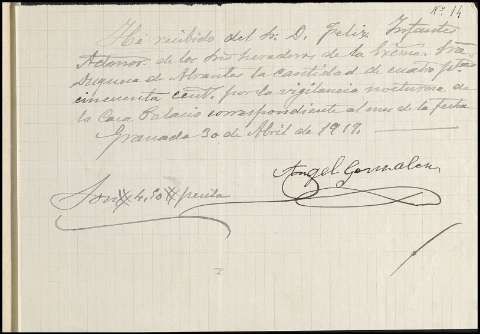 Nº 14
He recibido del Sr. D. Felix Infante
Admor. de los Sres herederos de la Excma. Sra.
Duquesa de Abrantes la cantidad de cuatro ptas
cincuenta cents. por la vigilancia nocturna de
la Casa Palacio correspondiente al mes de la fecha
Granada 30 de Abril de 1919.
Angel Gonzalez
Son # 4,50 # pesetas